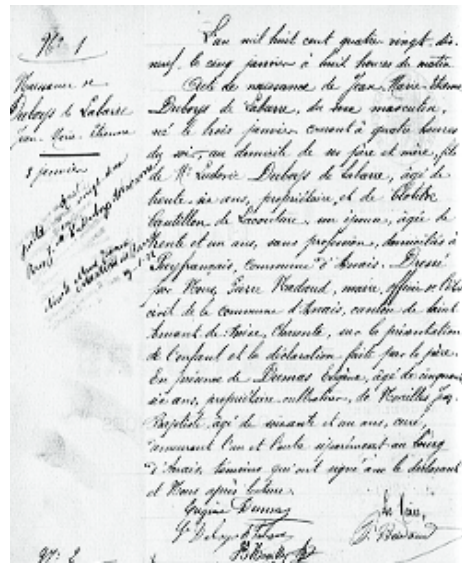 N° 1
Naissance de
Duboys de Labarre
Jean Marie Etienne
3 janvier
L'an mil huit cent quatre vingt dix
neuf, le cinq janvier à huit heures du matin
Acte de naissance de Jean Marie Etienne
Duboys de Labarre, du sexe masculin,
né le trois janvier courant à quatre heures
du soir, au domicile de ses père et mère, fils
de Mr Ludovic Duboys de Labarre, âgé de
trente six ans, propriétaire, et de Clotilde
de Lacouture, son épouse, âgée de
trente et un ans, sans profession, domiciliés à
Puyfrançais, commune d'Anais. Dressé
par Nous, Pierre Nadaud, maire, officier de l'état
civil de la commune d'Anais, canton de Saint
Amant de Boixe, Charente, sur la présentation
de l'enfant et la déclaration faite par le père.
En présence de Dumas Eugène, âgé de cinquante
six ans, propriétaire cultivateur, de Jean
Baptiste, âgé de soixante et un ans, curé,
demeurant l'un et l'autre séparément au bourg
d'Anais, témoins qui ont signé avec le déclarant
et Nous après lecture.
Eugène Dumas
Le Maire,
P. Nadaud
N° 2